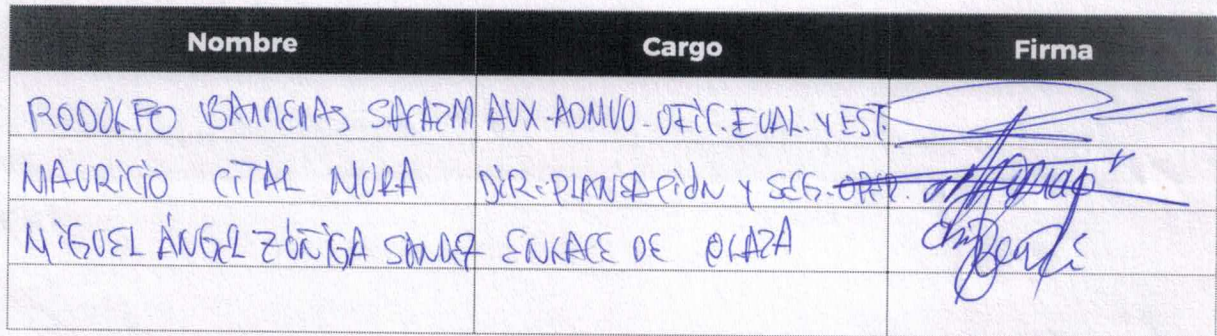 Nombre Cargo Firma
RODOLFO BARRERAS SALAZAR AUX. ADMVO. OFIC. EVAL. Y EST.
MAURICIO CITAL MORA DIR. PLANEACIÓN Y SEG. OPER.
MIGUEL ÁNGEL ZÚÑIGA ENLACE DE PLAZA